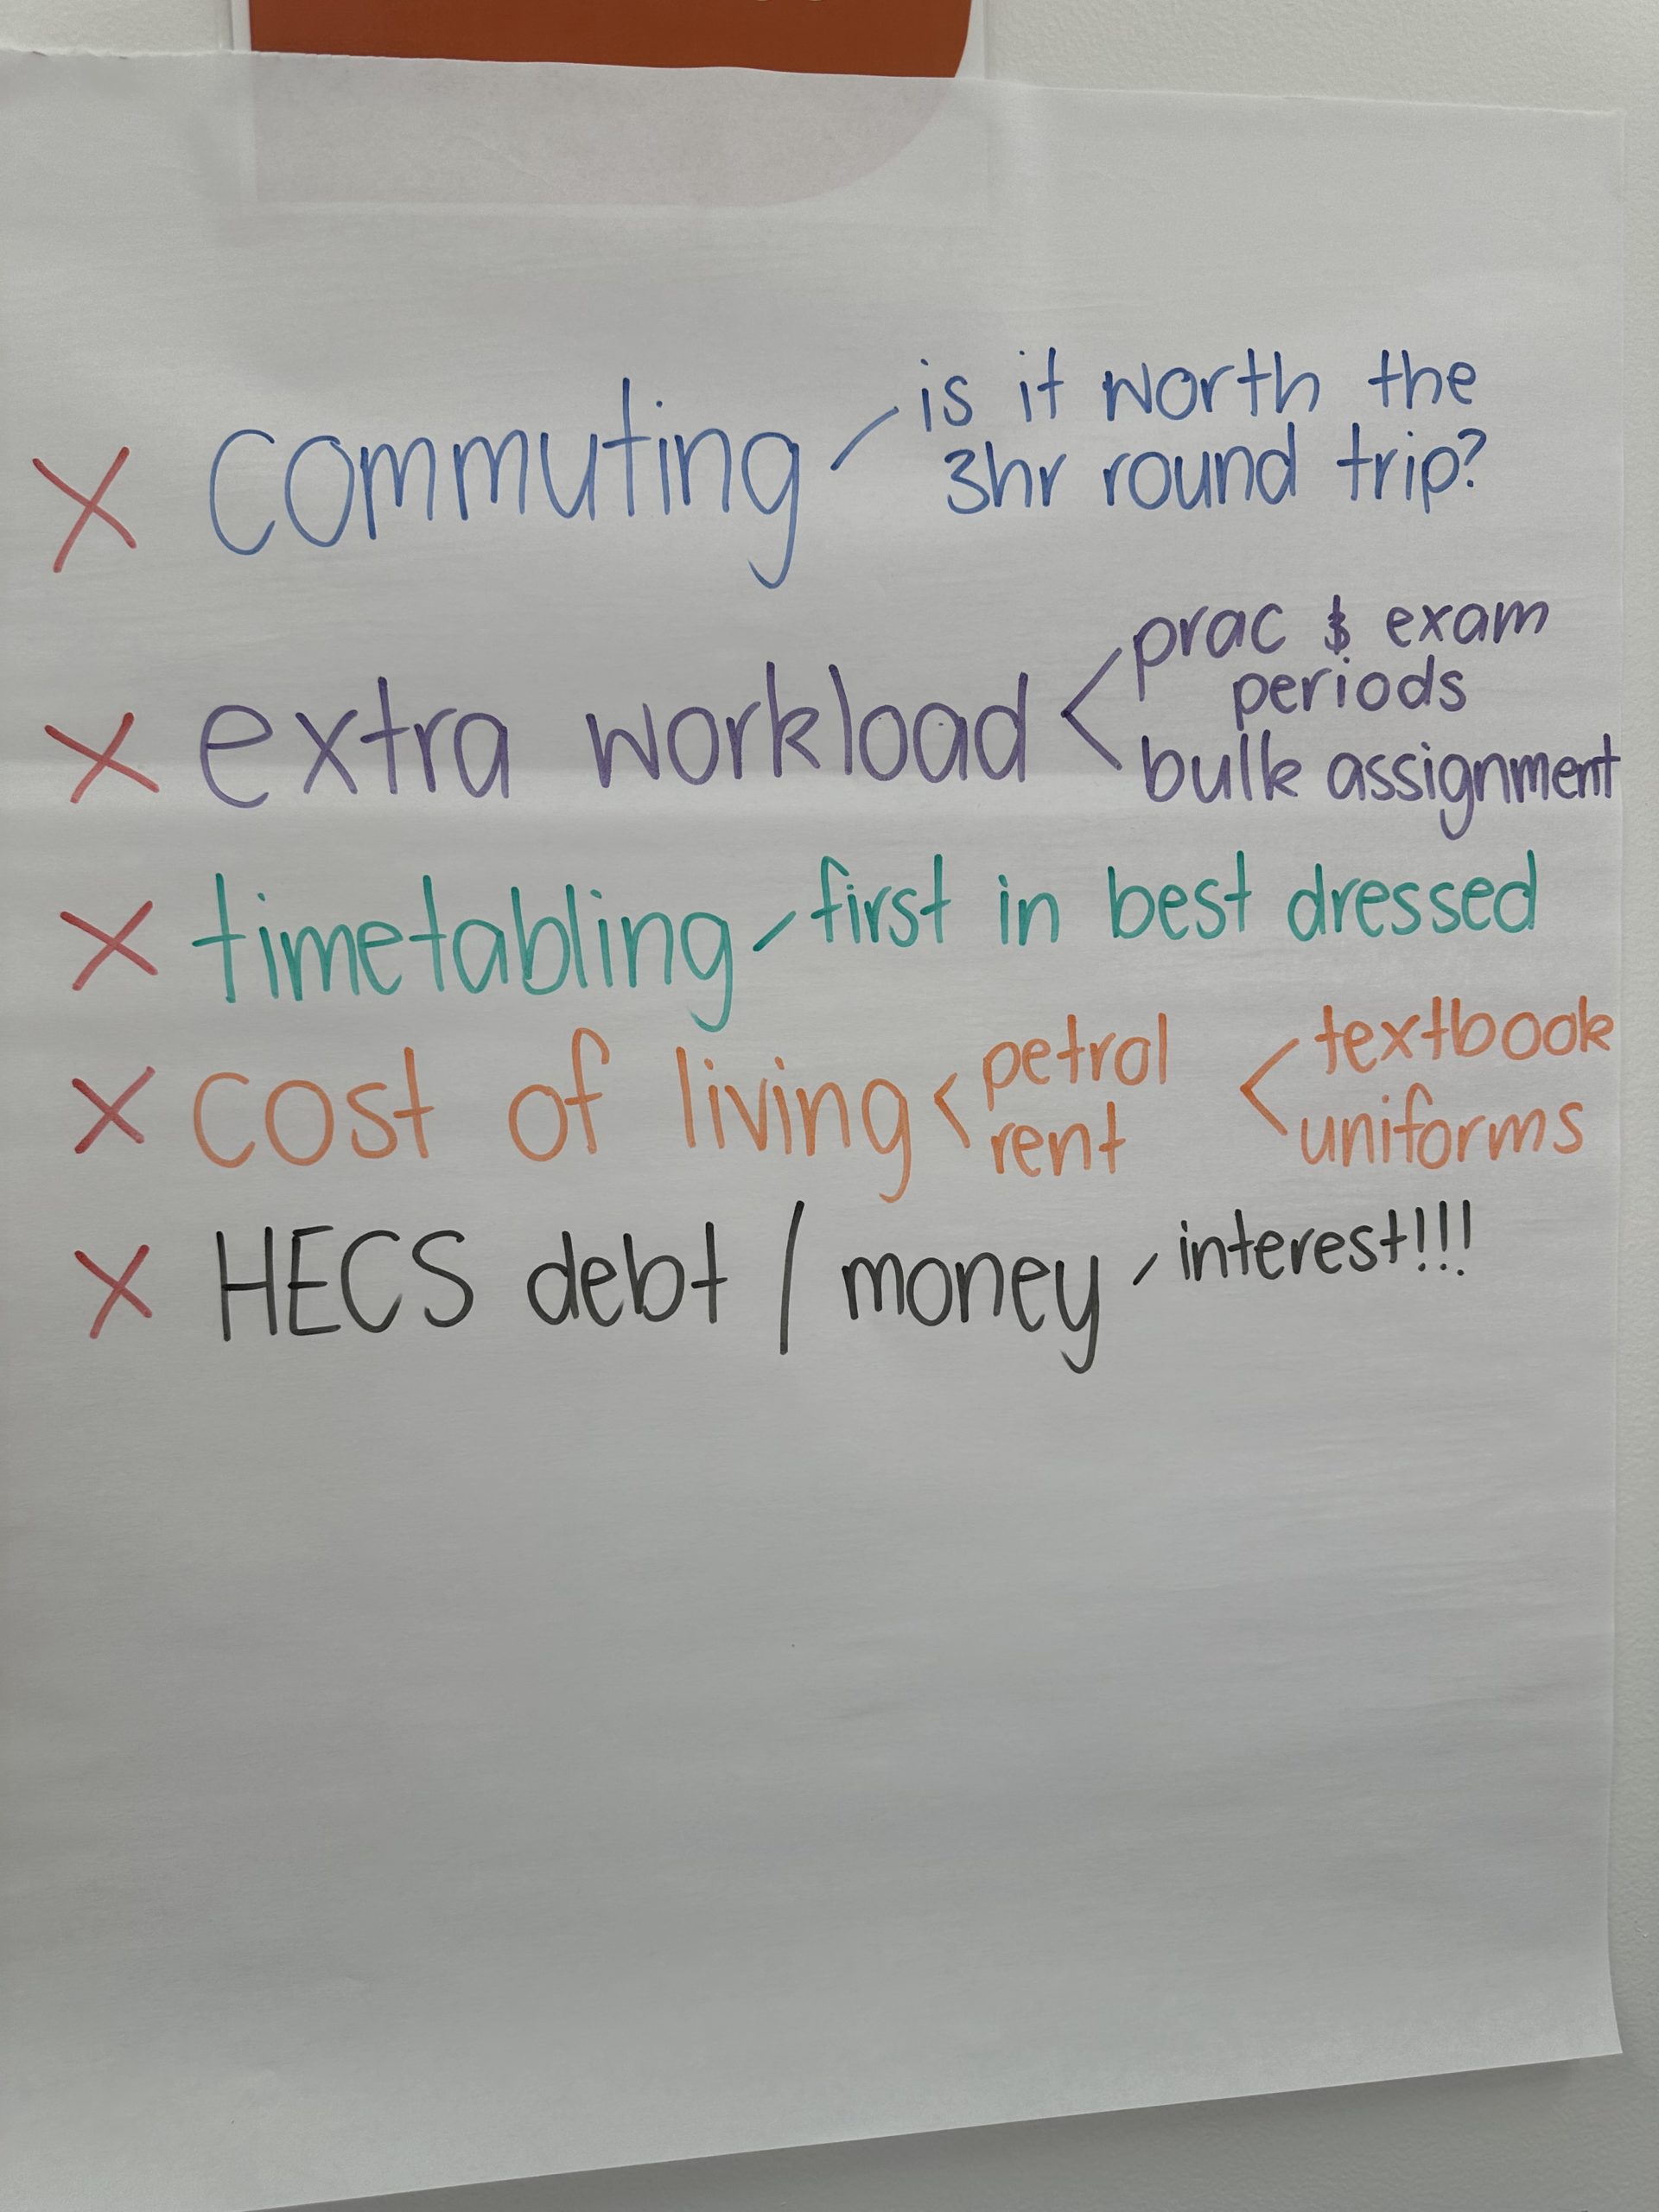 X commuting - is it worth the
3hr round trip?
X extra workload < prac & exam
periods
bulk assignment
X timetabling - first in best dressed
X cost of living < petrol < textbook
rent uniforms
X HECS debt / money - interest!!!